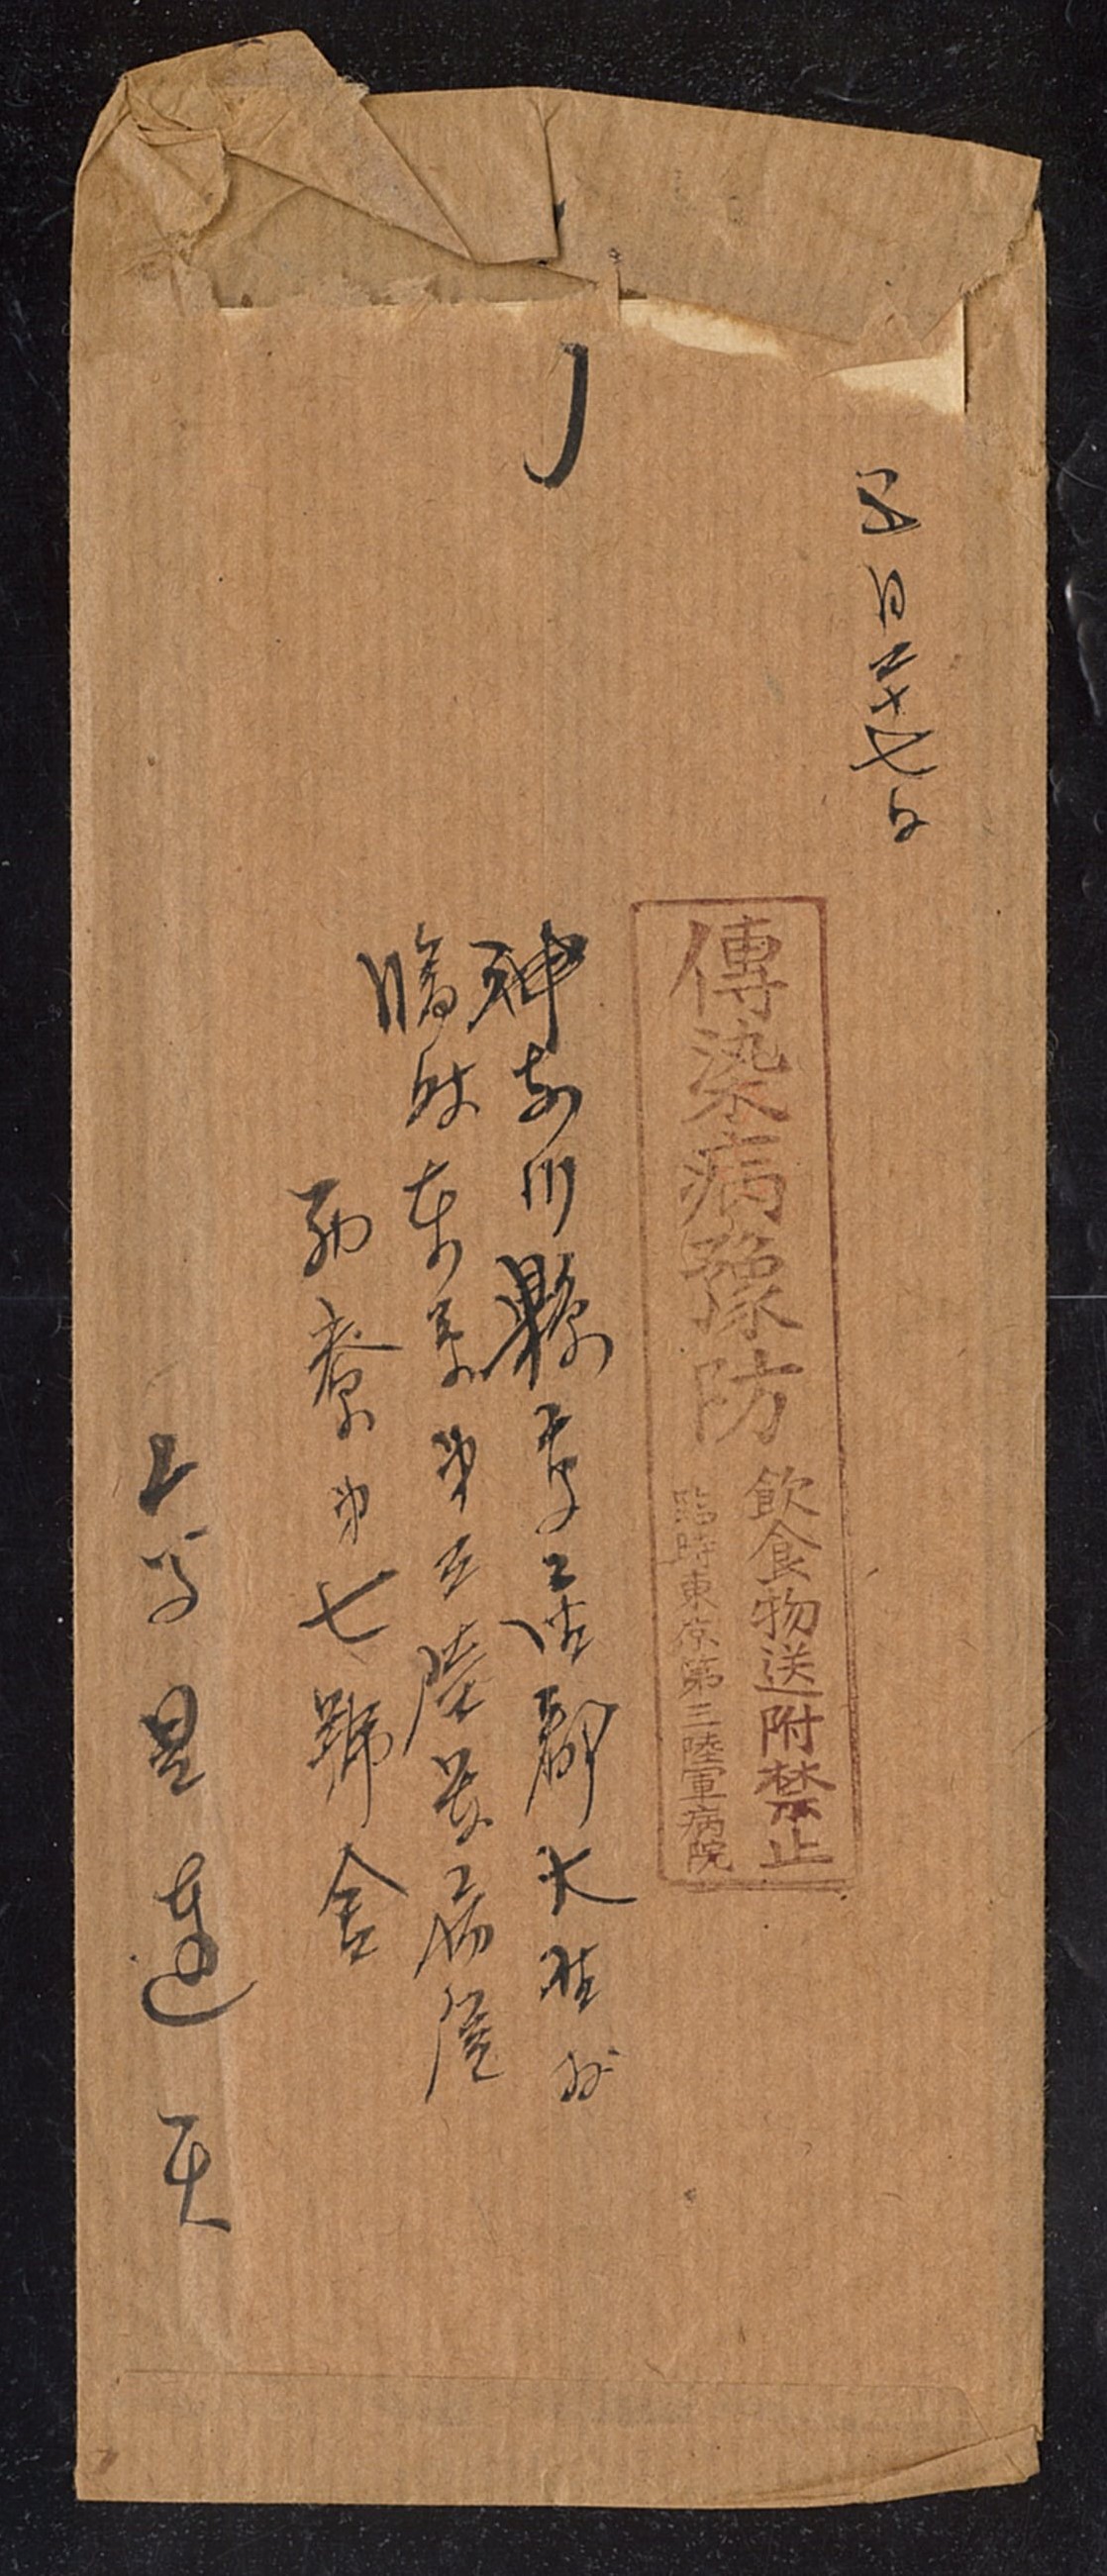 五月二十七日
傳染病豫防
飲食物送附禁止
臨時東京第三陸軍病院
神奈川縣高座郡大野村
臨時東京第三陸軍病院
西寮第七號舍
上等